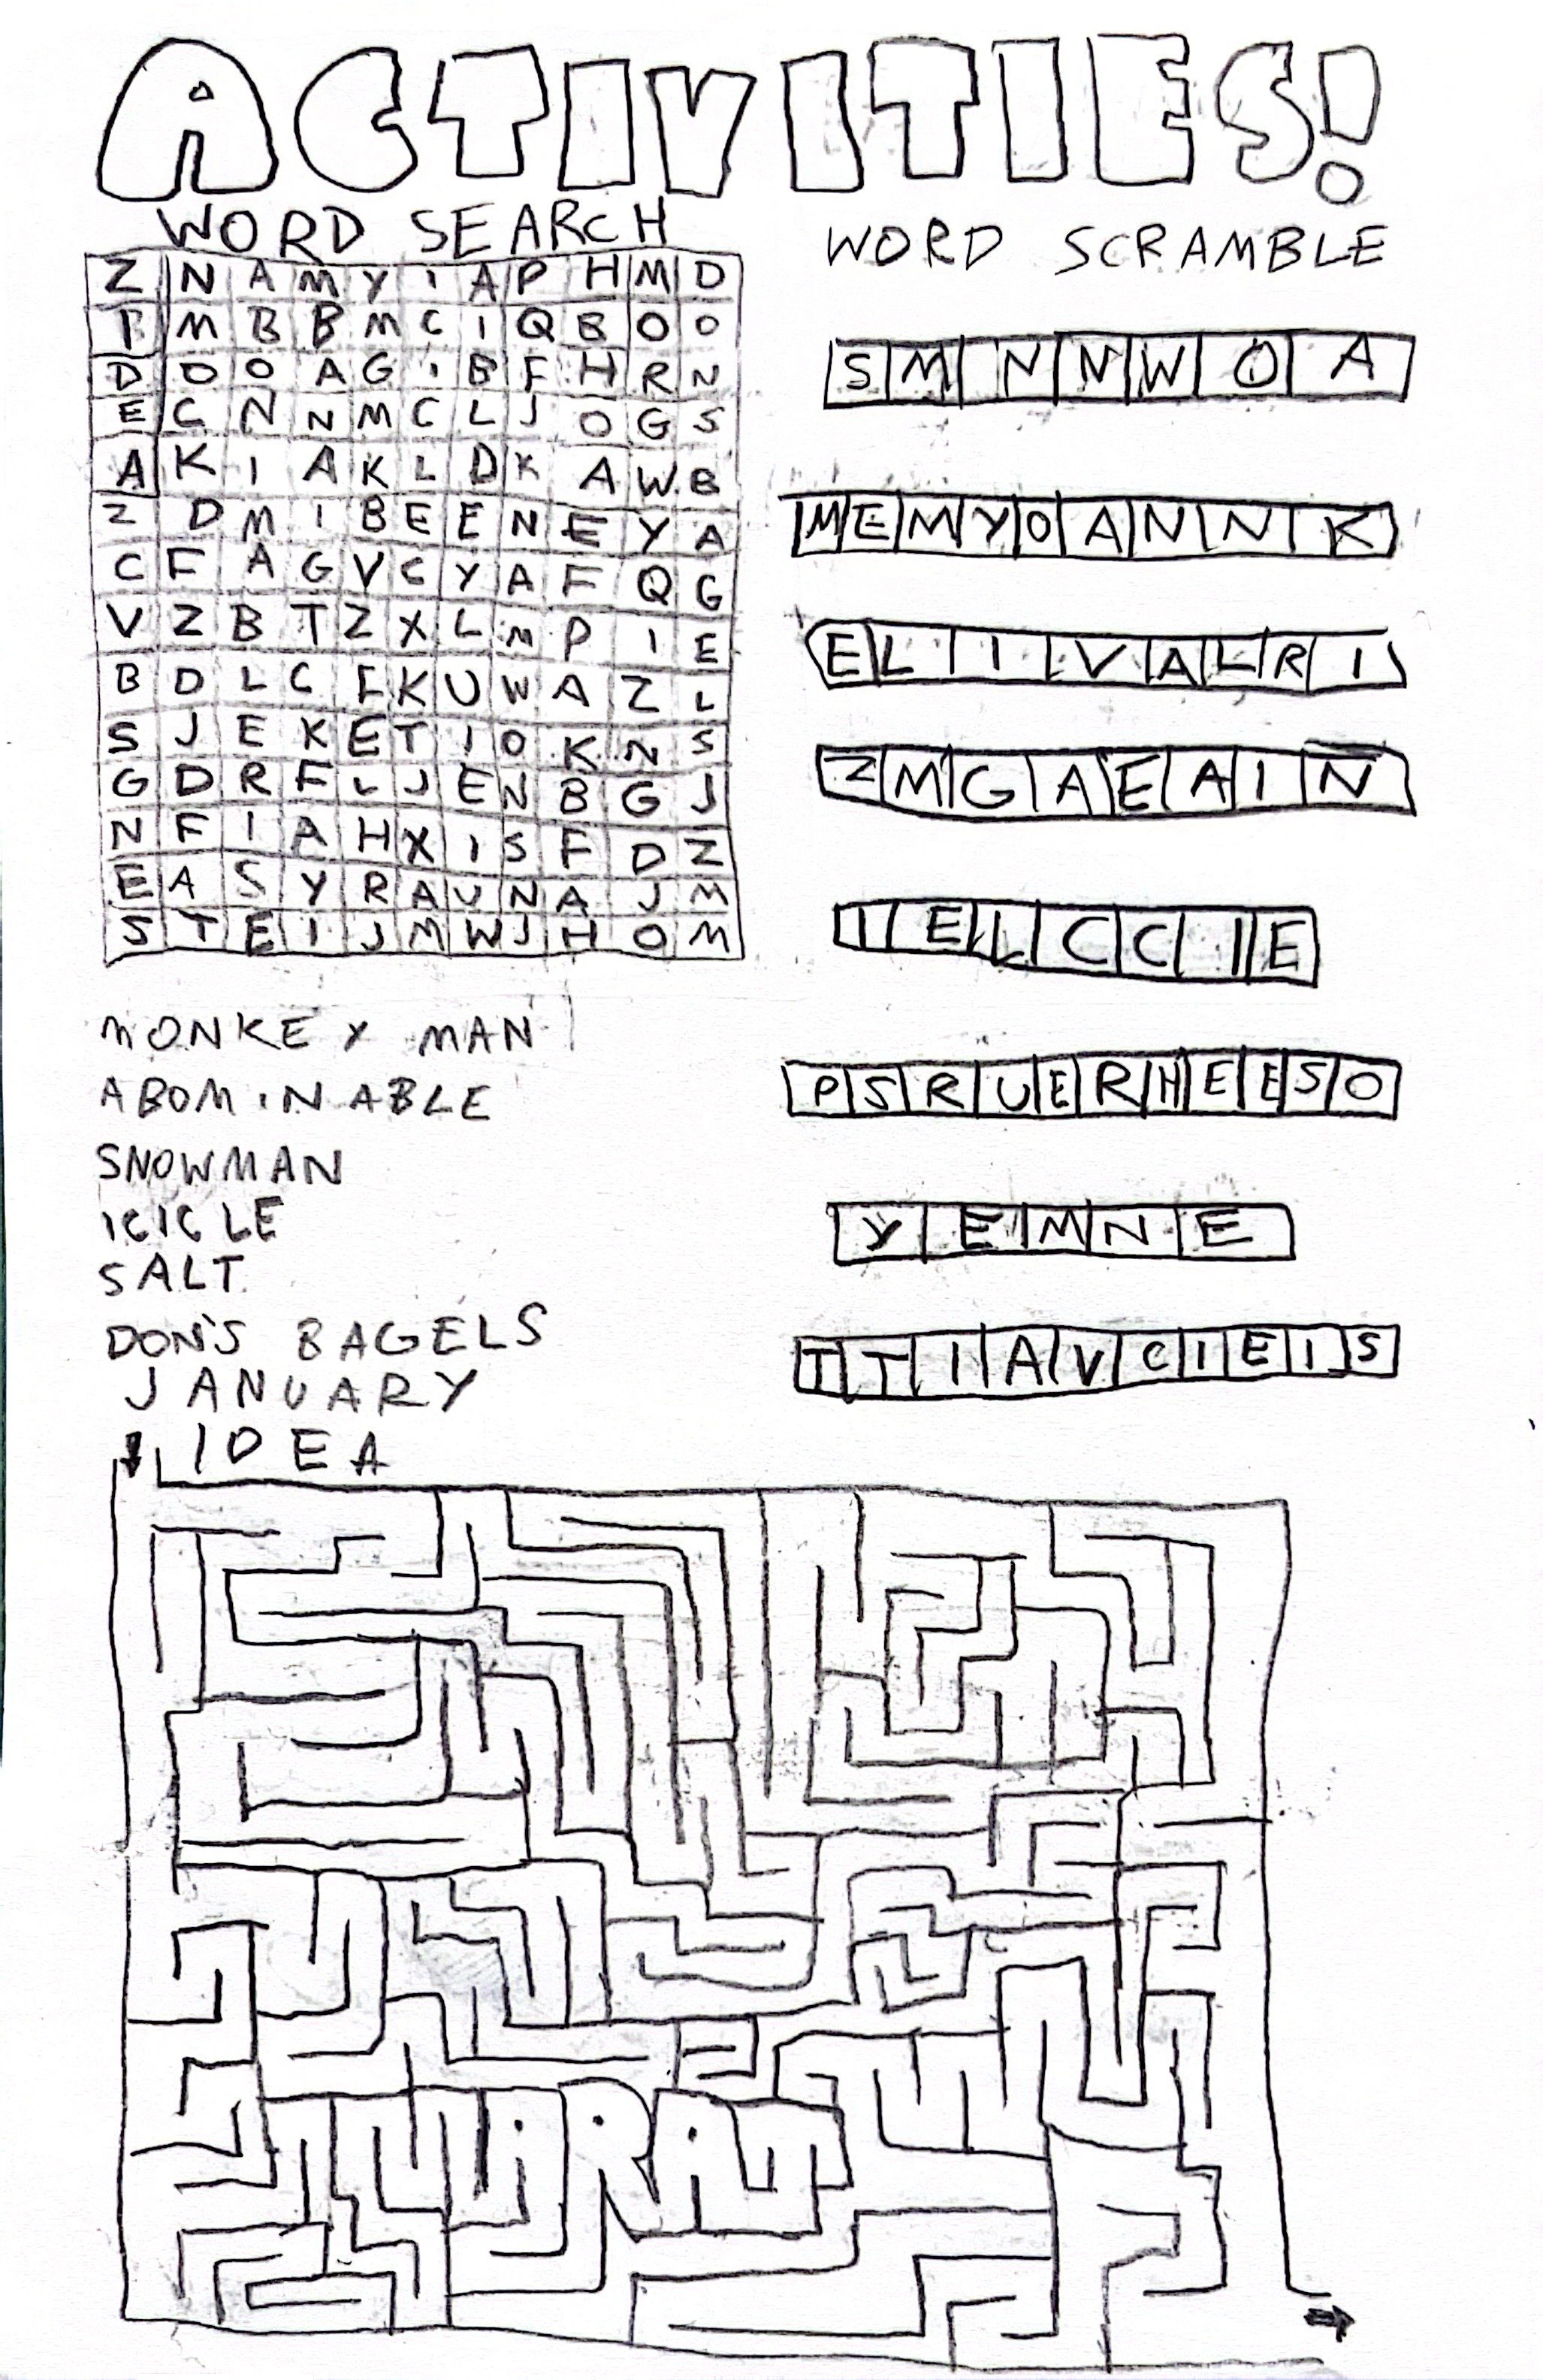 ACTIVITIES!
WORD SEARCH
Z N A M Y I A P H M D
I M B B M C I Q B O O
D O O A G I B F H R N
E C N N M C L J O G S
A K I A K L D K A W B
Z D M I B E E N E Y A
C F A G V C Y A F Q G
V Z B T Z X L M P I E
B D L C F K U W A Z L
S J E K E T I O K N S
G D R F L J E N B G J
N F I A H X I S F D Z
E A S Y R A U N A J M
S T E I J M W J H O M
MONKEY MAN
ABOMINABLE
SNOWMAN
ICICLE
SALT
DON'S BAGELS
JANUARY
IDEA
WORD SCRAMBLE
S M N N W O A
M E M Y O A N N K
E L I I V A L R I
Z M G A E A I N
I E L C C I E
P S R U E R H E E S O
Y E M N E
T T I A V C I E I S